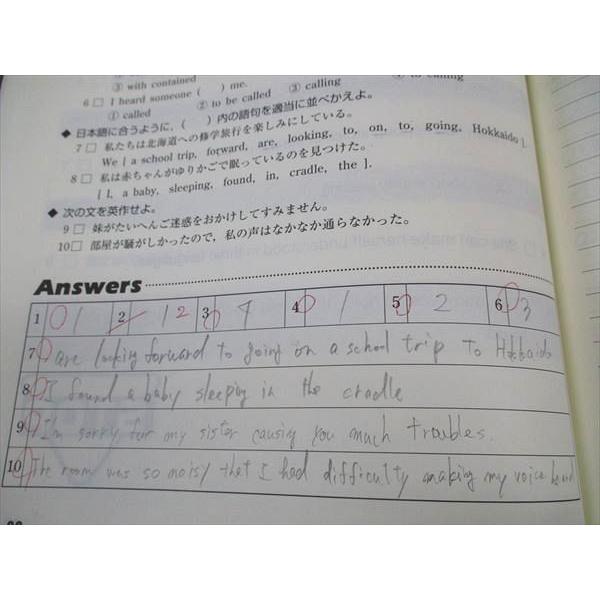 ③ with contained
6 □ I heard someone ( ) me.
① called ② to be called ③ calling
◆ 日本語に合うように，( ) 内の語句を適当に並べかえよ。
7 □ 私たちは北海道への修学旅行を楽しみにしている。
We [ a school trip, forward, are, looking, to, on, to, going, Hokkaido ].
8 □ 私は赤ちゃんがゆりかごで眠っているのを見つけた。
[ I, a baby, sleeping, found, in, cradle, the ].
◆ 次の文を英作せよ。
9 □ 妹がたいへんご迷惑をおかけしてすみません。
10 □ 部屋が騒がしかったので，私の声はなかなか通らなかった。
Answers
1 1 2 1 2 3 4 4 1 5 2 6 3
7 are looking forward to going on a school trip to Hokkaido
8 I found a baby sleeping in the cradle
9 I'm sorry for my sister causing you much troubles.
10 The room was so noisy that I had difficulty making my voice heard